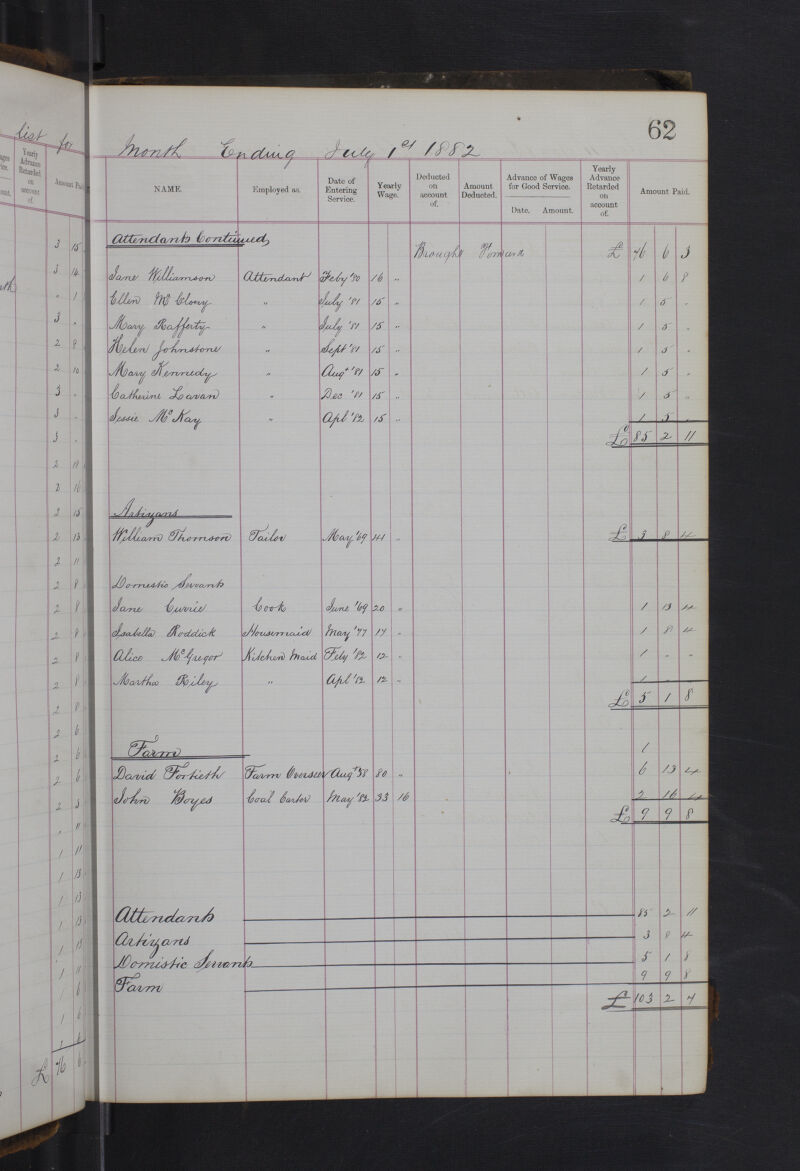 62
Month Ending July 1st 1882
NAME. Employed as. Date of Entering Service. Yearly Wage. Deducted on account of. Amount Deducted. Advance of Wages for Good Service. Date. Amount. Yearly Advance Retarded on account of. Amount Paid.
Attendants Continued, Brought Forward £ 76 6 3
Jane Williamson Attendant Feby '80 16 " 1 6 8
Ellen McClony " July '81 15 " 1 5 "
Mary Rafferty " July '81 15 " 1 5 "
Helen Johnstone " Sept '81 15 " 1 5 "
Mary Kennedy " Augt '81 15 " 1 5 "
Catherine Lavan " Dec '81 15 " 1 5 "
Jessie McKay " Apl '82 15 " 1 5 "
£ 85 2 11
Artizans
William Thomson Tailor May '69 41 " £ 3 8 4
Domestic Servants
Jane Currie Cook June '69 20 " 1 13 4
Isabella Roddick Housemaid May '77 17 " 1 8 4
Alice McGregor Kitchen Maid Feby '82 12 " 1 " "
Martha Riley " Apl '82 12 " 1 " "
£ 5 1 8
Farm 1
David Fortieth Farm Overseer Augt '58 80 " 6 13 4
John Boyes Coal Carter May '82 33 16 2 16 4
£ 9 9 8
Attendants 85 2 11
Artizans 3 8 4
Domistic Servants 5 1 8
Farm 9 9 8
£ 103 2 7